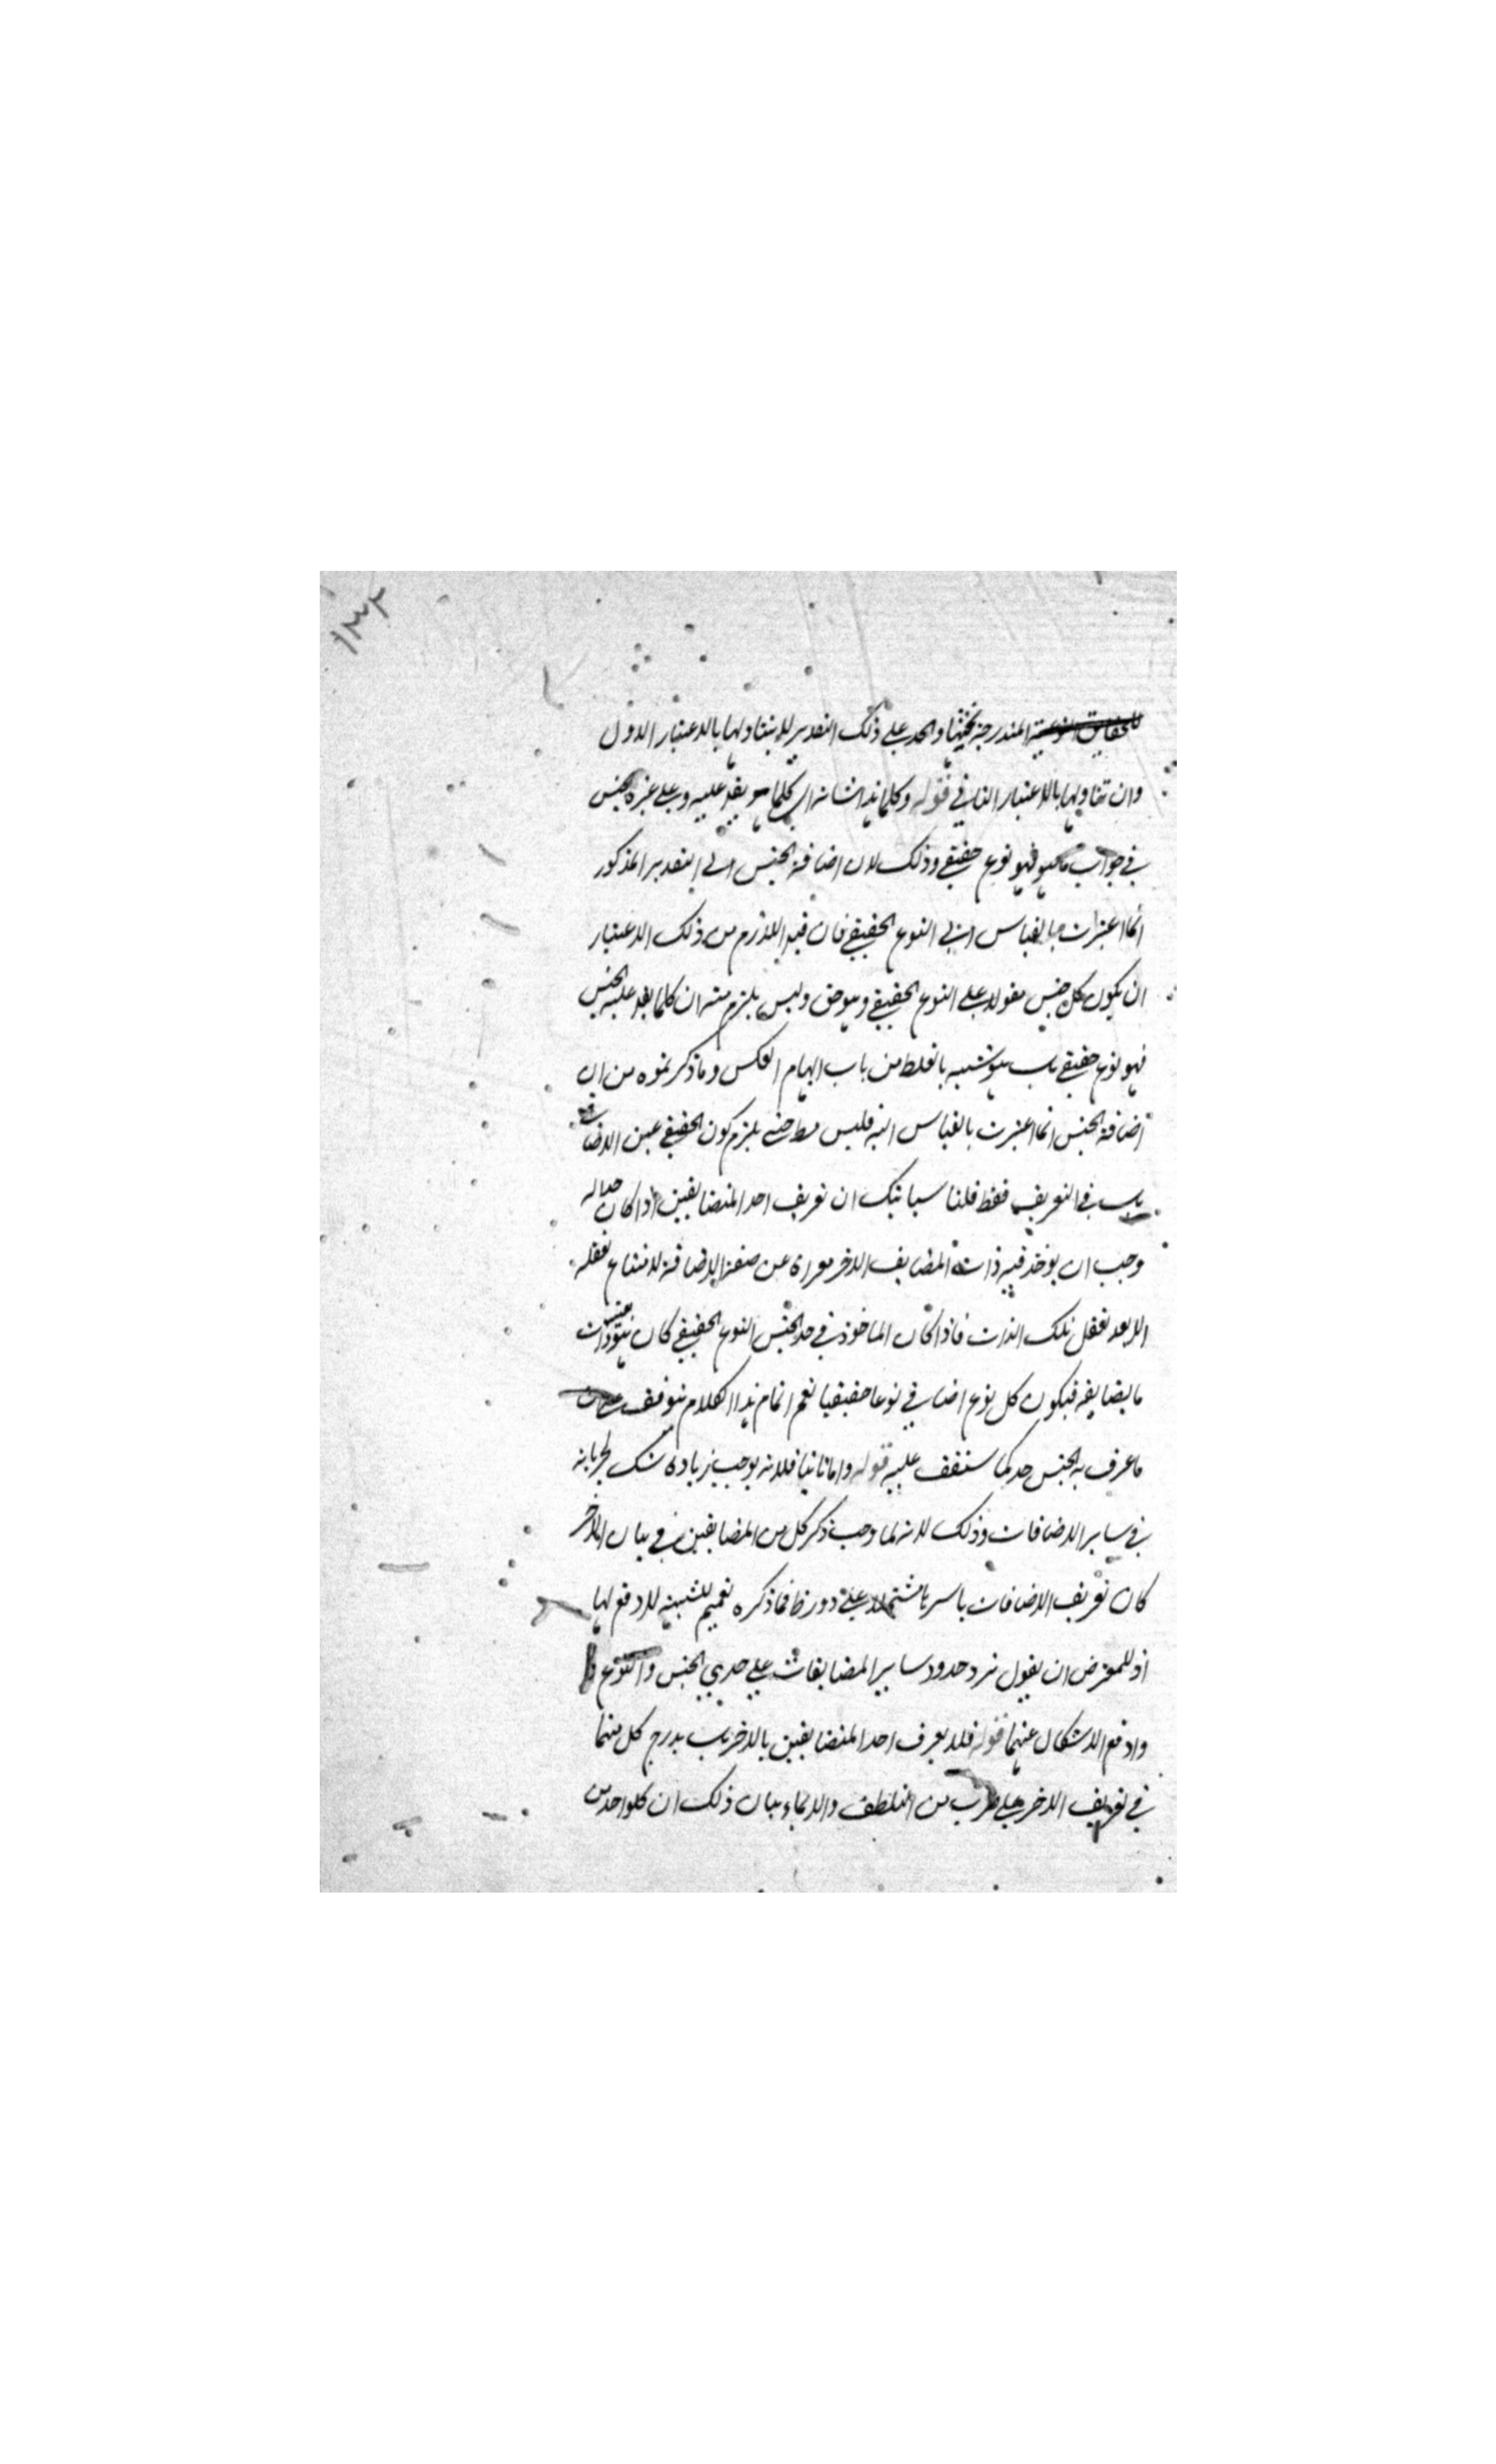 ١٣٣
للحقايق النوعية المندرجة تحتها والحد على ذلك التقدير لا يتناولها بالاعتبار الاول
وان تناولها بالاعتبار الثاني قوله وكلما هذا شانه اي كلما هو يقال عليه وعلى غيره الجنس
في جواب ما هو فهو نوع حقيقي وذلك لان اضافة الجنس الى التقدير المذكور
انما اعتبرت بالقياس الى النوع الحقيقي فان قيل اللازم من ذلك الاعتبار
ان يكون كل جنس مقولا على النوع الحقيقي وهو حق وليس يلزم منه ان كلما يقال عليه الجنس
فهو نوع حقيقي بل هو شبيه بالغلط من باب ايهام العكس وما ذكرتموه من ان
اضافة الجنس انما اعتبرت بالقياس اليه فليس حتى يلزم كون الحقيقي عين الاضافي
بل في التعريف فقط قلنا سياتيك ان تعريف احد المتضايفين اذا كان حدا له
وجب ان يوخذ فيه ذات المضايف الاخر معراة عن صفة الاضافة لامتناع تعقله
الا بعد تعقل تلك الذات فاذا كان الماخوذ في حد الجنس النوع الحقيقي كان هو ذات
ما يضايفه فيكون كل نوع اضافي نوعا حقيقيا نعم اتمام هذا الكلام يتوقف على ان
ما عرف به الجنس حد كما ستقف عليه قوله واما ثانيا فلانه يوجب زيادة شك لجريانه
في ساير الاضافات وذلك لانه لما وجب ذكر كل من المضايفين في بيان الاخر
كان تعريف الاضافات باسرها مشتملا على دور ظ فما ذكره تعميم للشبهة لا دفع لها
اذ للمعترض ان يقول نرد حدود ساير المضايفات على حدي الجنس والنوع
وادفع الاشكال عنهما قوله فلا يعرف احد المتضايفين بالاخر بل يدرج كل منهما
في تعريف الاخر على ضرب من التلطف والايماء بيان ذلك ان كل واحد من